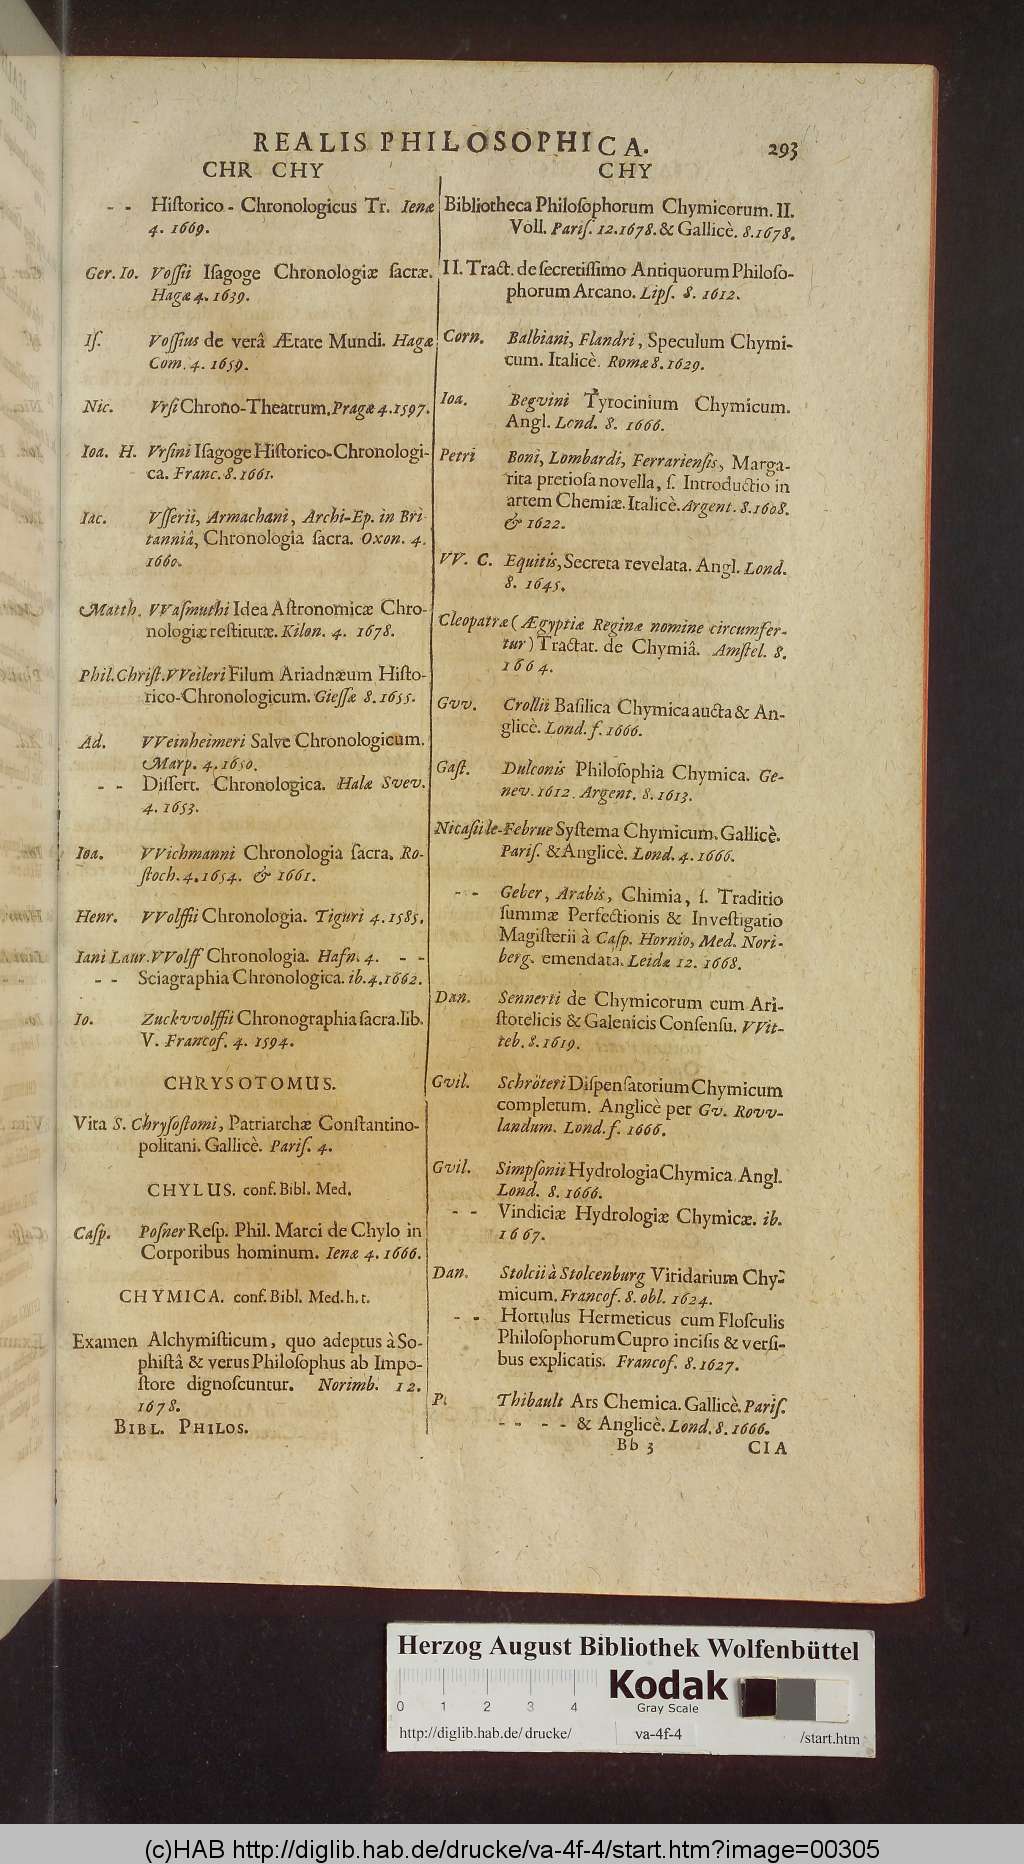 REALIS PHILOSOPHICA.
293
CHR CHY
CHY
- - Hiſtorico-Chronologicus Tr. Ienæ
4. 1669.
Ger. Io. Voſſii Iſagoge Chronologiæ ſacræ.
Hagæ 4. 1639.
Iſ. Voſſius de verâ Ætate Mundi. Hagæ
Com. 4. 1659.
Nic. Vrſi Chrono-Theatrum. Pragæ 4. 1597.
Ioa. H. Vrſini Iſagoge Hiſtorico-Chronologi-
ca. Franc. 8. 1661.
Iac. Vſſerii, Armachani, Archi-Ep. in Bri-
tanniâ, Chronologia ſacra. Oxon. 4.
1660.
Matth. VVaſmuthi Idea Aſtronomicæ Chro-
nologiæ reſtitutæ. Kilon. 4. 1678.
Phil. Chriſt. VVeileri Filum Ariadnæum Hiſto-
rico-Chronologicum. Gieſſæ 8. 1655.
Ad. VVeinheimeri Salve Chronologicum.
Marp. 4. 1650.
- - Diſſert. Chronologica. Halæ Svev.
4. 1653.
Ioa. VVichmanni Chronologia ſacra. Ro-
ſtoch. 4. 1654. & 1661.
Henr. VVolffii Chronologia. Tiguri 4. 1585.
Iani Laur. VVolff Chronologia. Hafn. 4. - -
- - Sciagraphia Chronologica. ib. 4. 1662.
Io. Zuckvvolffii Chronographia ſacra. lib.
V. Francof. 4. 1594.
CHRYSOTOMUS.
Vita S. Chryſoſtomi, Patriarchæ Conſtantino-
politani. Gallicè. Pariſ. 4.
CHYLUS. conf. Bibl. Med.
Caſp. Poſner Reſp. Phil. Marci de Chylo in
Corporibus hominum. Ienæ 4. 1666.
CHYMICA. conf. Bibl. Med. h. t.
Examen Alchymiſticum, quo adeptus à So-
phiſtâ & verus Philoſophus ab Impo-
ſtore dignoſcuntur. Norimb. 12.
1678.
BIBL. PHILOS.
Bibliotheca Philoſophorum Chymicorum. II.
Voll. Pariſ. 12. 1678. & Gallicè. 8. 1678.
II. Tract. de ſecretiſſimo Antiquorum Philoſo-
phorum Arcano. Lipſ. 8. 1612.
Corn. Balbiani, Flandri, Speculum Chymi-
cum. Italicè. Romæ 8. 1629.
Ioa. Begvini Tyrocinium Chymicum.
Angl. Lond. 8. 1666.
Petri Boni, Lombardi, Ferrarienſis, Marga-
rita pretioſa novella, ſ. Introductio in
artem Chemiæ. Italicè. Argent. 8. 1608.
& 1622.
VV. C. Equitis, Secreta revelata. Angl. Lond.
8. 1645.
Cleopatræ (Ægyptiæ Reginæ nomine circumfer-
tur) Tractat. de Chymiâ. Amſtel. 8.
1664.
Gvv. Crollii Baſilica Chymica aucta & An-
glicè. Lond. f. 1666.
Gaſt. Dulconis Philoſophia Chymica. Ge-
nev. 1612. Argent. 8. 1613.
Nicaſii le-Februe Syſtema Chymicum. Gallicè.
Pariſ. & Anglicè. Lond. 4. 1666.
- - Geber, Arabis, Chimia, ſ. Traditio
ſummæ Perfectionis & Inveſtigatio
Magiſterii à Caſp. Hornio, Med. Nori-
berg. emendata. Leidæ 12. 1668.
Dan. Sennerti de Chymicorum cum Ari-
ſtotelicis & Galenicis Conſenſu. VVit-
teb. 8. 1619.
Gvil. Schröteri Diſpenſatorium Chymicum
completum. Anglicè per Gv. Rovv-
landum. Lond. f. 1666.
Gvil. Simpſonii Hydrologia Chymica Angl.
Lond. 8. 1666.
- - Vindiciæ Hydrologiæ Chymicæ. ib.
1667.
Dan. Stolcii à Stolcenburg Viridarium Chy-
micum. Francof. 8. obl. 1624.
- - Hortulus Hermeticus cum Floſculis
Philoſophorum Cupro inciſis & verſi-
bus explicatis. Francof. 8. 1627.
P. Thibault Ars Chemica. Gallicè. Pariſ.
- - - - & Anglicè. Lond. 8. 1666.
Bb 3
CIA
Herzog August Bibliothek Wolfenbüttel
0 1 2 3 4
Kodak
Gray Scale
http://diglib.hab.de/drucke/ va-4f-4 /start.htm
(c)HAB http://diglib.hab.de/drucke/va-4f-4/start.htm?image=00305